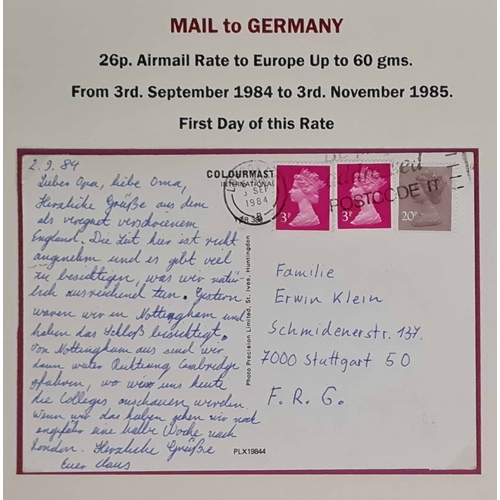 MAIL to GERMANY
26p. Airmail Rate to Europe Up to 60 gms.
From 3rd. September 1984 to 3rd. November 1985.
First Day of this Rate
2.9.84
Lieber Opa, liebe Oma,
Herzliche Grüße aus dem
als verregnet verschrienem
England. Die Zeit hier ist recht
angenehm und es gibt viel
zu besichtigen, was wir natür-
lich ausreichend tun. Gestern
waren wir in Nottingham und
haben das Schloß besichtigt.
Von Nottingham aus sind wir
dann weiter Richtung Cambridge
gefahren, wo wir uns heute
die Colleges anschauen werden.
Wenn wir das haben gehen wir noch
ungefähr eine halbe Woche nach
London. Herzliche Grüße
Euer Claus
COLOURMASTER
INTERNATIONAL
3 SEP
1984
POSTCODE IT
3P
3P
20P
Photo Precision Limited, St. Ives, Huntingdon
Familie
Erwin Klein
Schmidenerstr. 137
7000 Stuttgart 50
F. R. G.
PLX19844